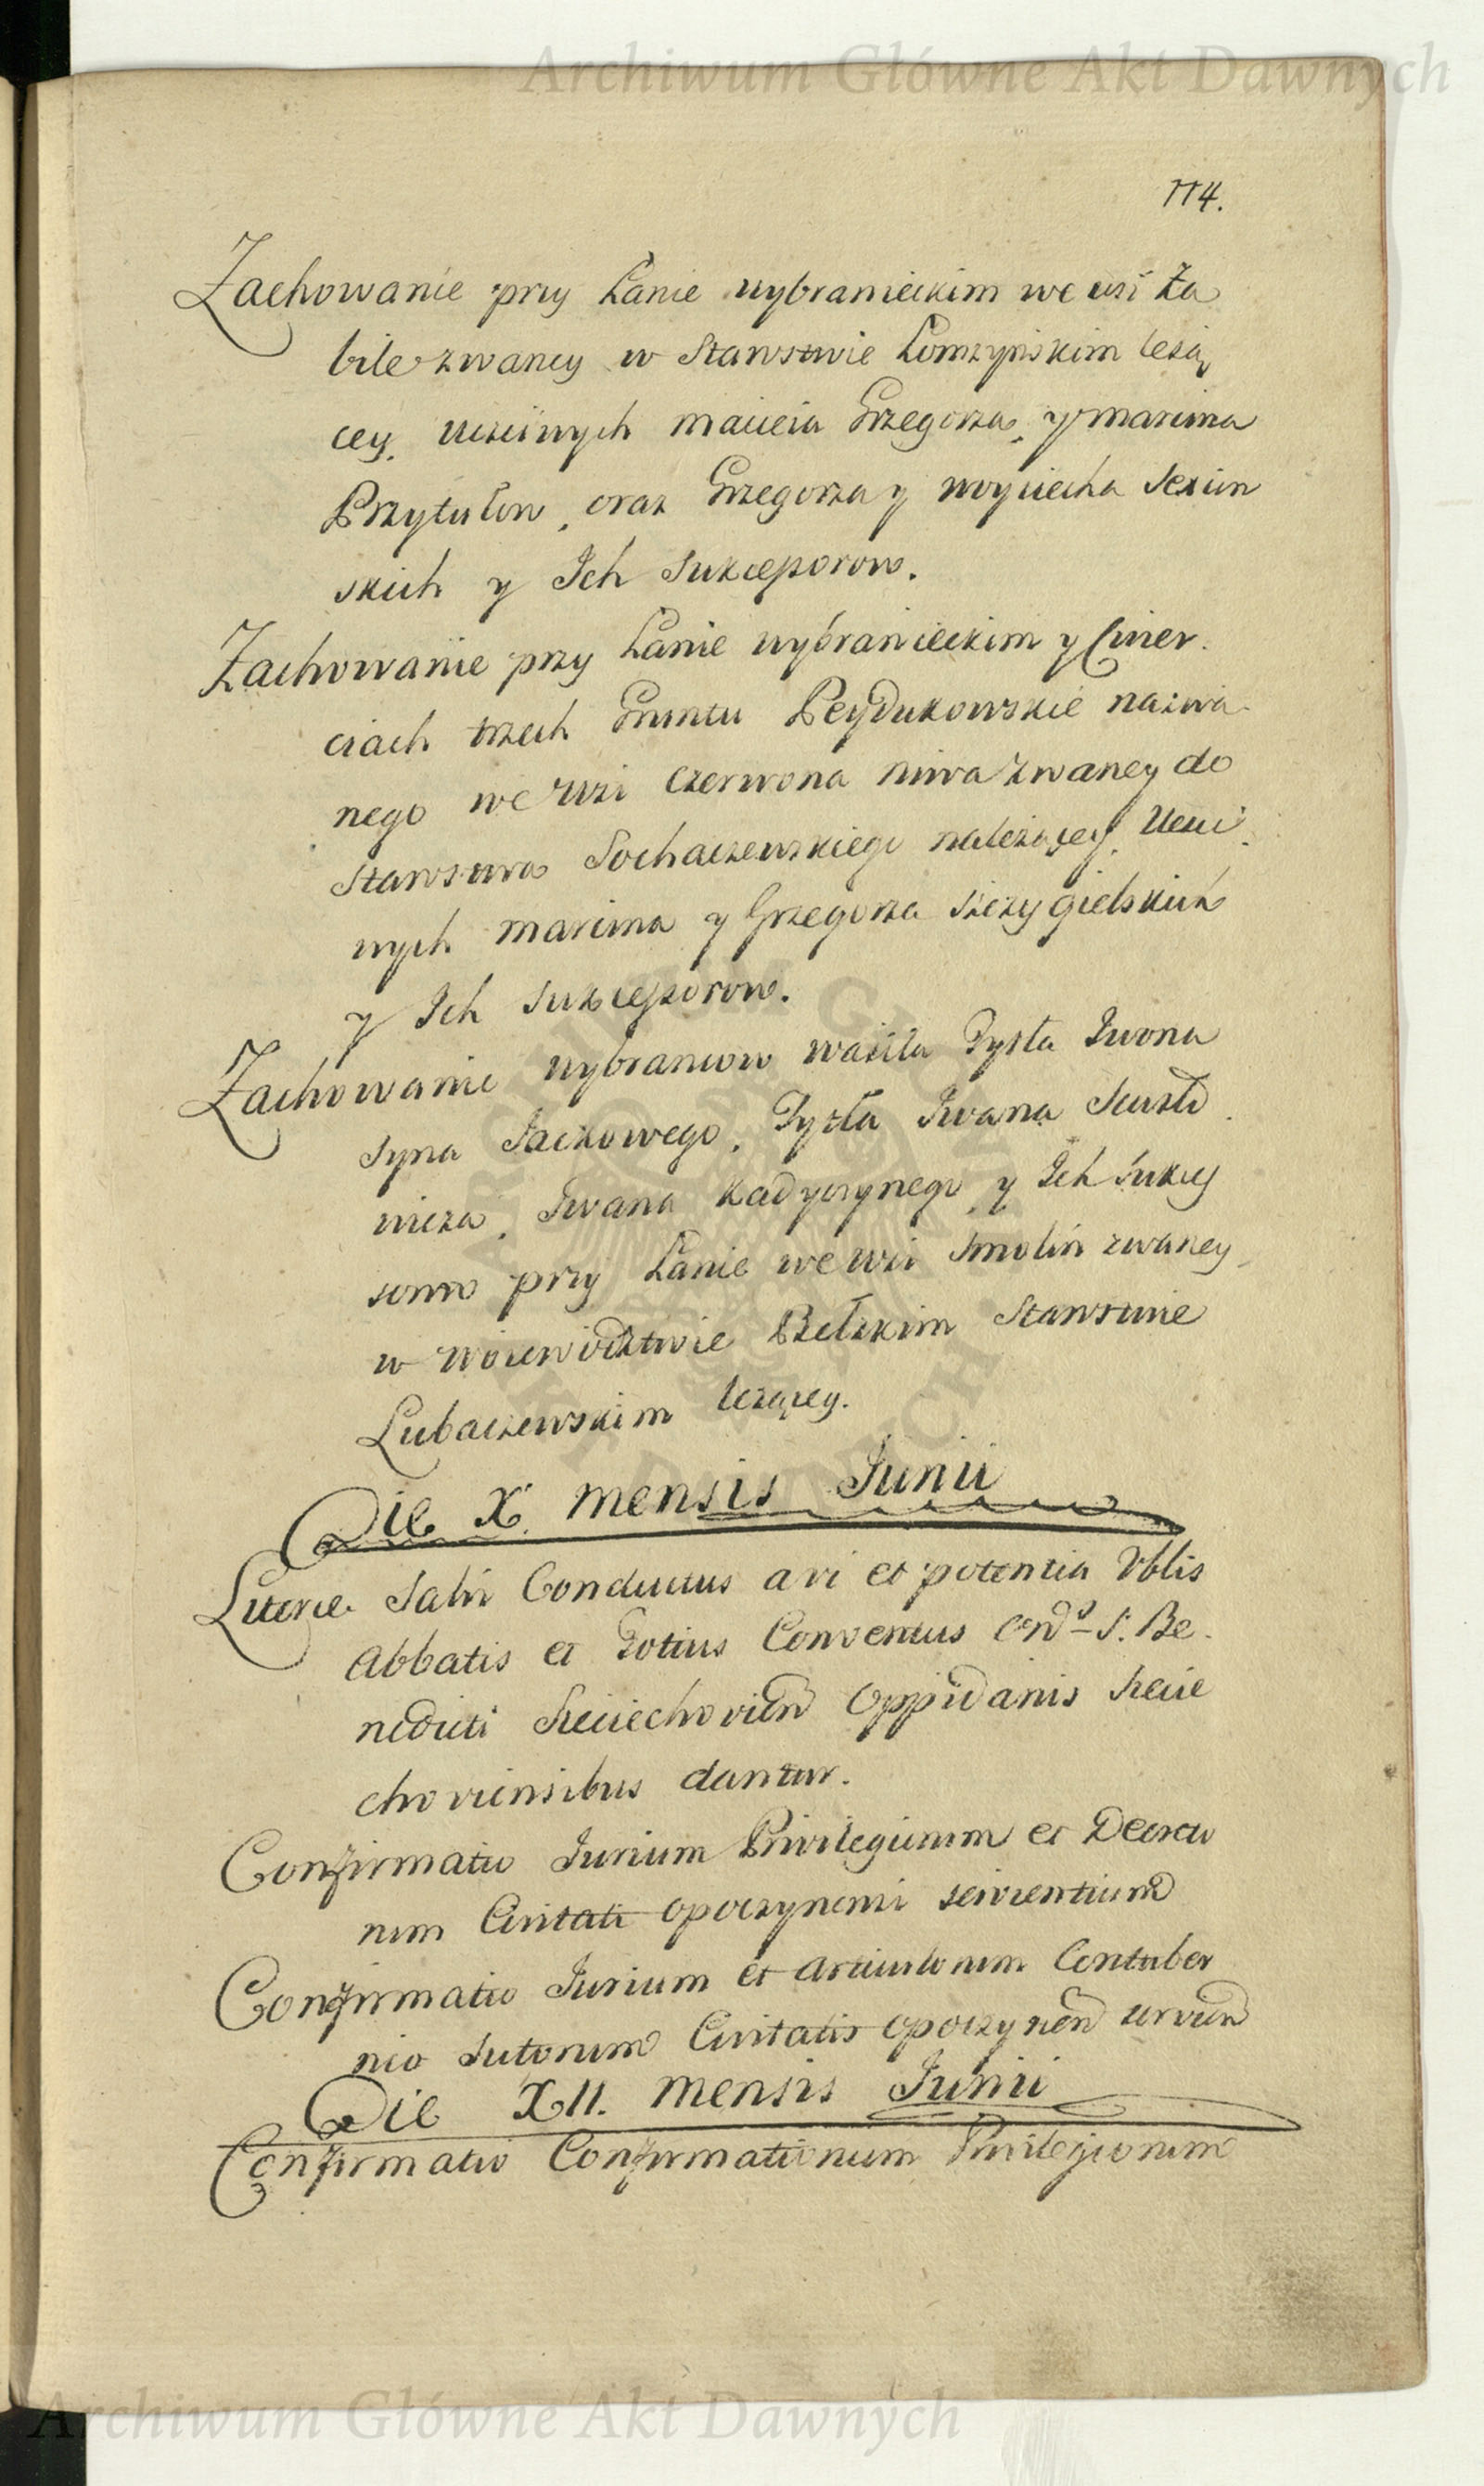 Archiwum Główne Akt Dawnych
114.
Zachowanie przy Łanie wybranieckim we wsi Za
bile zwaney w Starostwie Łomzynskim leżą
cey. Uczciwych macieia Grzegorza, y marcina
Przytułow, oraz Grzegorza y woyciecha
skich y Ich Sukcessorow.
Zachowanie przy Łanie wybranieckim y Cwier.
ciach trzech Gruntu Peydukowskie nazwa
nego we wsi Czerwona niwa zwaney do
Starostwa Sochaczewskiego należącey. Uczci
wych marcina y Grzegorza Szczygielskich
y Ich Sukcessorow.
Zachowanie wybrancow wasila Dysta Iwona
syna Jackowego, Dyzła Iwana
wicza, Iwana y Ich Sukces
sorow przy Łanie we wsi Smolin zwaney
w woiewodztwie Bełzkim Starostwie
Lubaczewskim leżącey.
Die X. mensis Junii
Literæ Salvi Conductus a vi et potentia Vblis
Abbatis et Totius Conventus Ord. S. Be.
nedicti Sieciechovien Oppidanis Siecie
choviensibus dantur.
Confirmatio Jurium Privilegiorum et Decreto
rum Civitati opoczynensi servientium
Confirmatio Jurium et Articulorum Contuber
nio Sutorum Civitatis opoczynen servien
Die XII. mensis Junii
Confirmatio Confirmationum Privilegiorum
Archiwum Główne Akt Dawnych